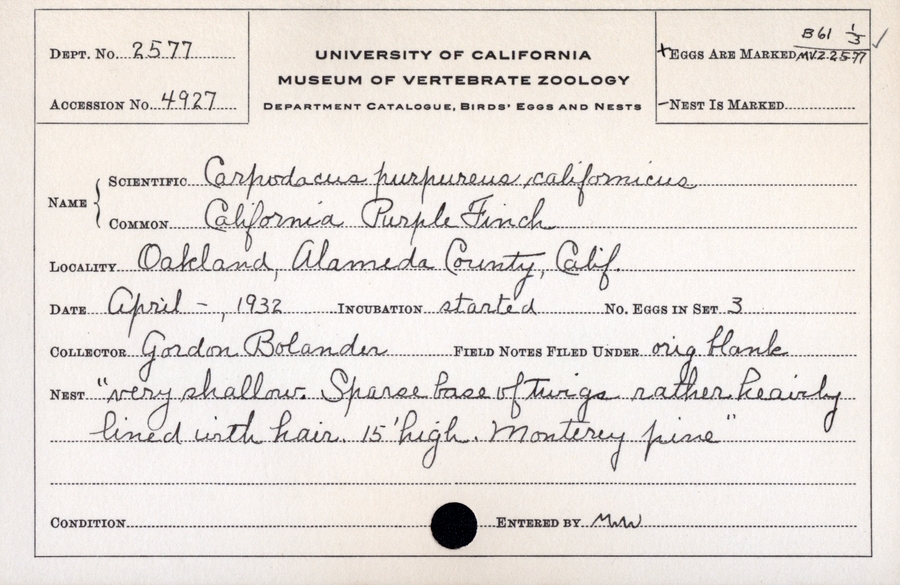 DEPT. No. 2577
ACCESSION No. 4927
UNIVERSITY OF CALIFORNIA
MUSEUM OF VERTEBRATE ZOOLOGY
DEPARTMENT CATALOGUE, BIRDS' EGGS AND NESTS
B61 1/3 ✓
+EGGS ARE MARKED MVZ 2577
–NEST IS MARKED
NAME { SCIENTIFIC Carpodacus purpureus californicus
COMMON California Purple Finch
LOCALITY Oakland, Alameda County, Calif.
DATE April – , 1932 INCUBATION started NO. EGGS IN SET 3
COLLECTOR Gordon Bolander FIELD NOTES FILED UNDER orig blank
NEST "very shallow. Sparse base of twigs rather heavily
lined with hair. 15' high. Monterey pine"
CONDITION ENTERED BY